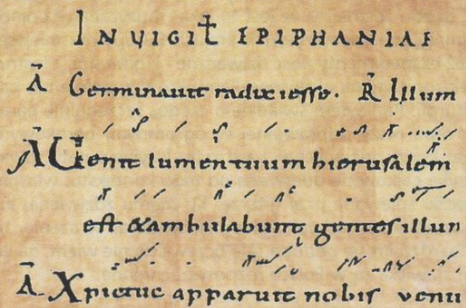 IN VIGIƚ EPIPHANIAE
Ā Germinauit radix iesse. R̄ Illum
Ā Uenit lumen tuum hierusalem
est & ambulabunt gentes illum
Ā Xpictuc apparuit nobis uenu